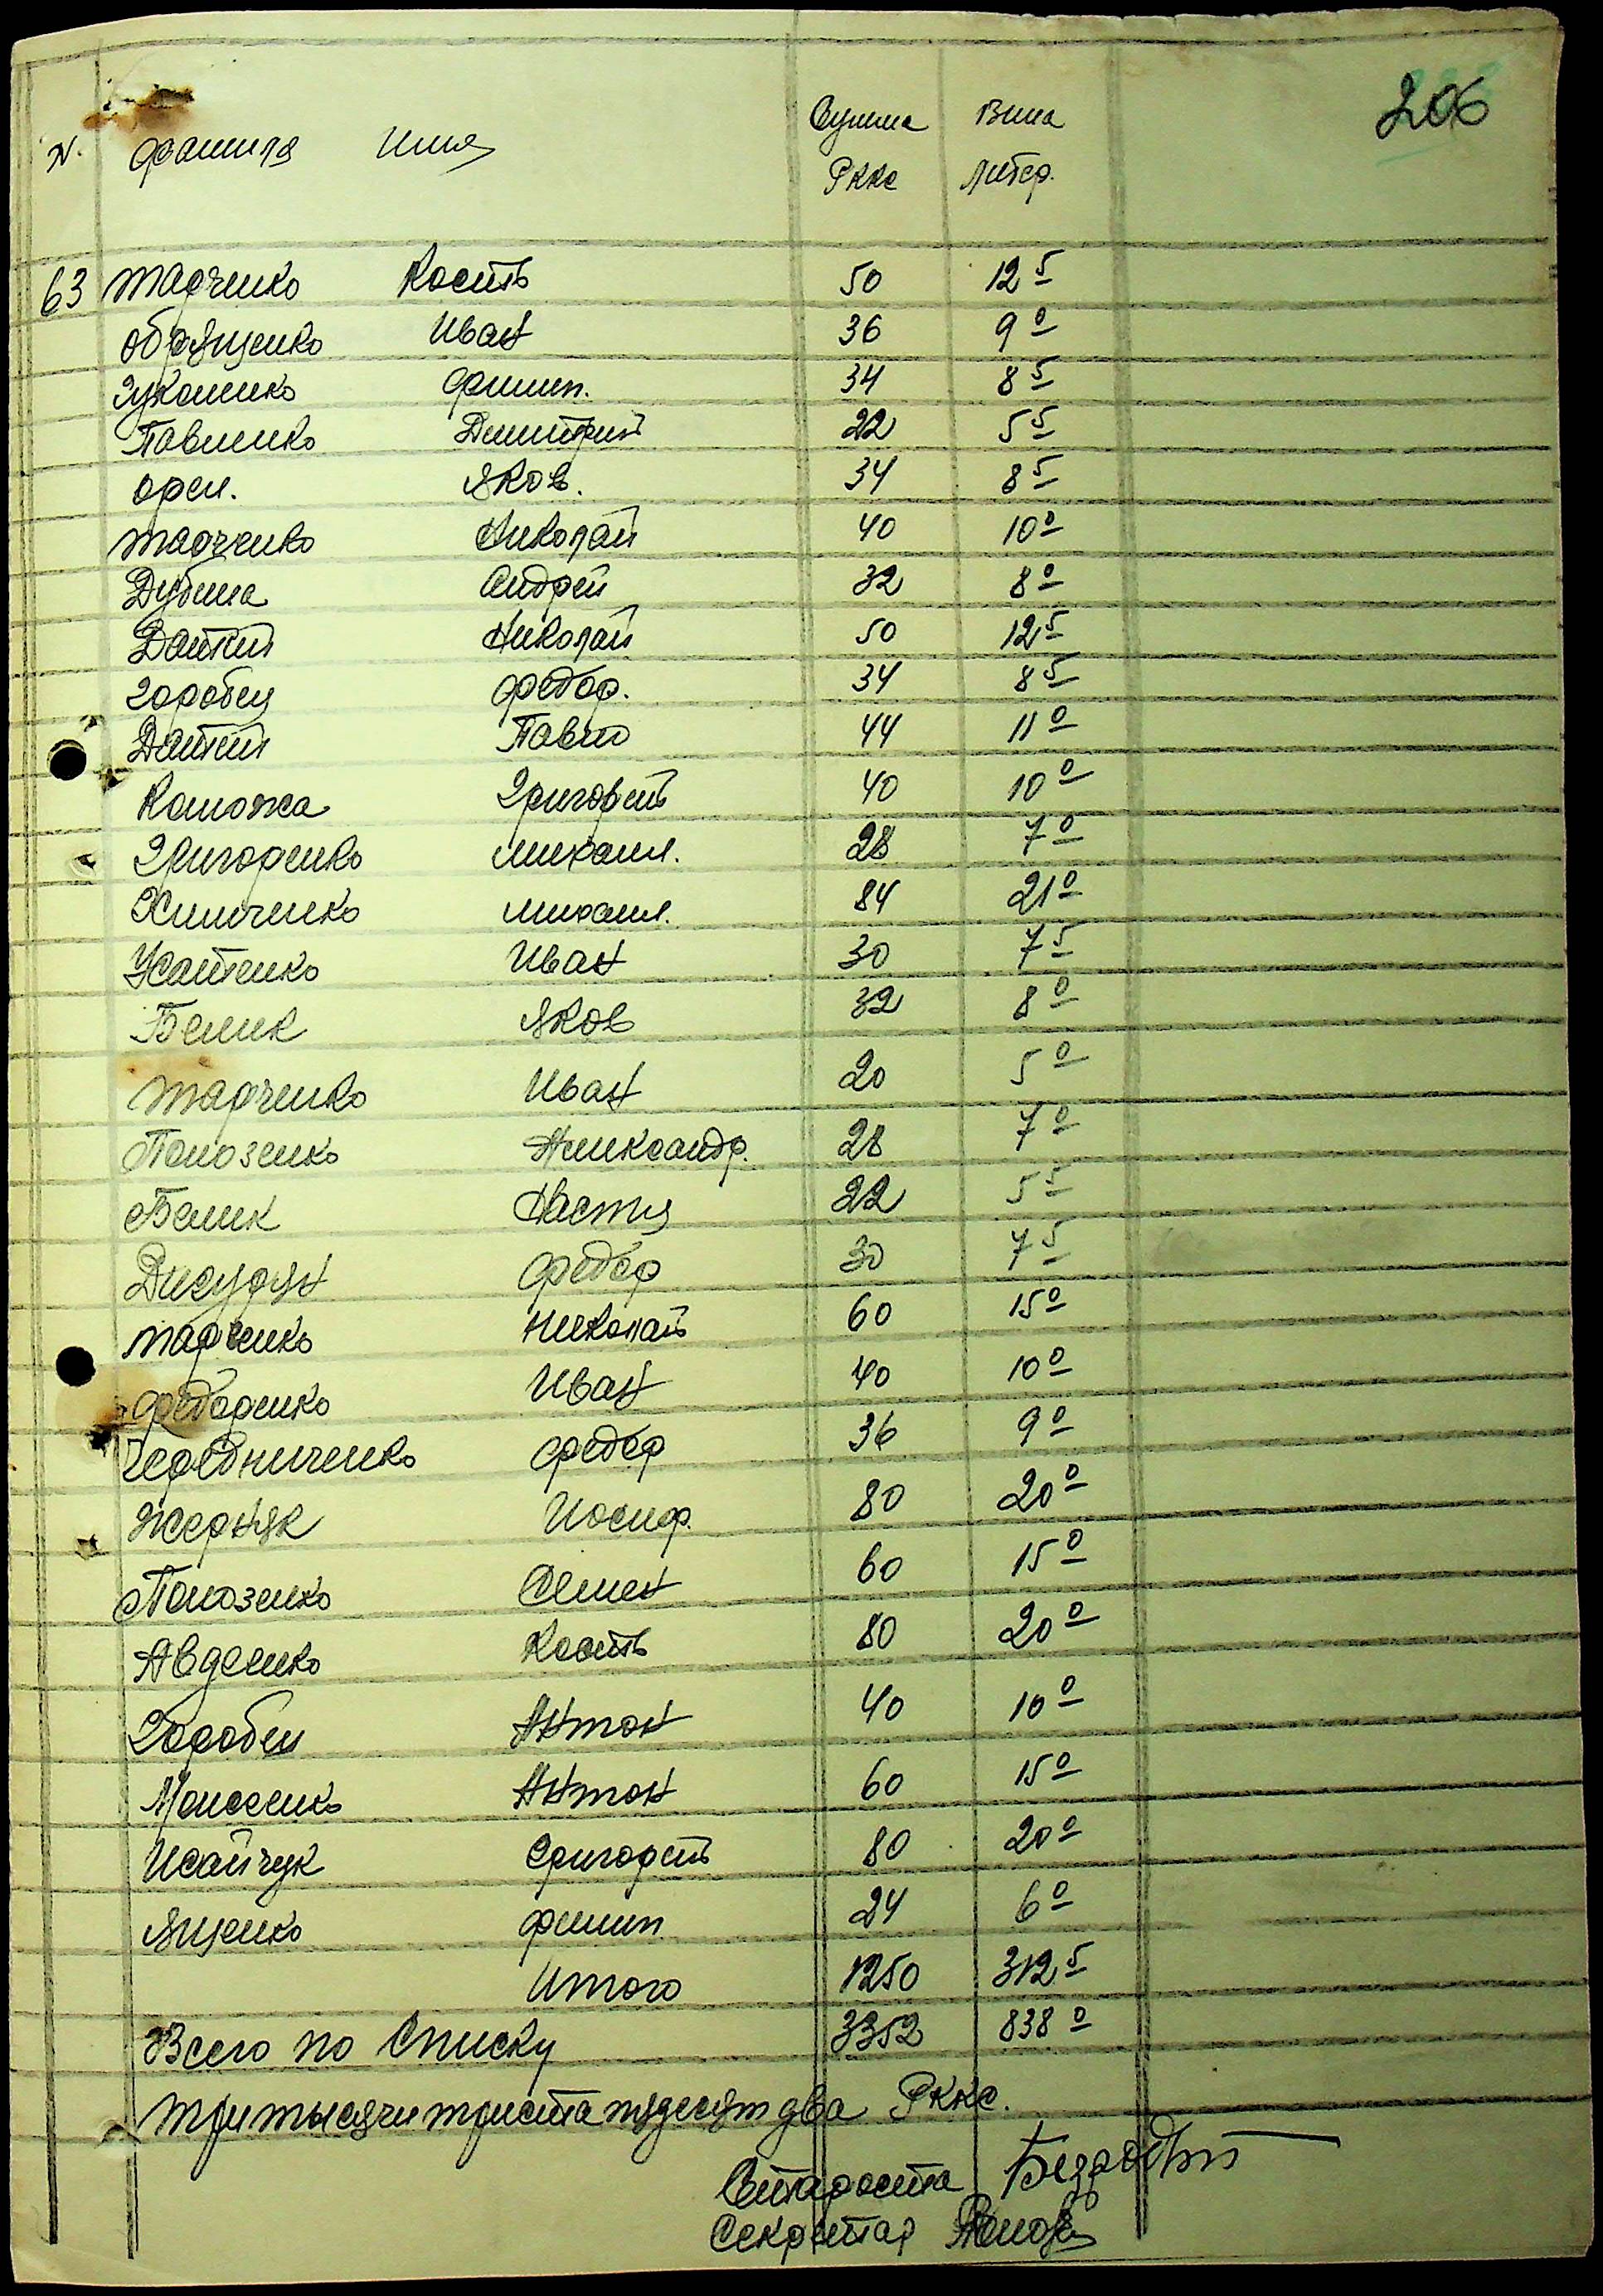 206
N. Фамиля Имя Сумма Вина
Ркке Литер.
63 Марченко Кость 50 12 5
Обращенко Иван 36 9 0
Лукаменко Филип. 34 8 5
Павленко Дмитрий 22 5 5
Орел. Яков. 34 8 5
Марченко Николай 40 10 0
Дубина Андрей 32 8 0
Даткий Николай 50 12 5
Горобец Федор. 34 8 5
Даткий Павло 44 11 0
Каможа Григорей 40 10 0
Григоренко Михаил. 28 7 0
Химченко Михаил. 84 21 0
Усатенко Иван 30 7 5
Белик Яков 32 8 0
Марченко Иван 20 5 0
Полозенко Александр. 28 7 0
Белик Настя 22 5 5
Дисудян Федор 30 7 5
Марченко Николай 60 15 0
Федоренко Иван 40 10 0
Чередниченко Федор 36 9 0
Жерняк Иосиф. 80 20 0
Полозенко Семен 60 15 0
Авдеенко Кость 80 20 0
Горобец Антон 40 10 0
Моисеенко Антон 60 15 0
Исайчук Григорей 80 20 0
Ященко Филип 24 6 0
Итого 1250 312 5
Всего по Списку 3352 838 0
три тысячи триста пядесят два Ркке.
Староста Безродний
Секретар